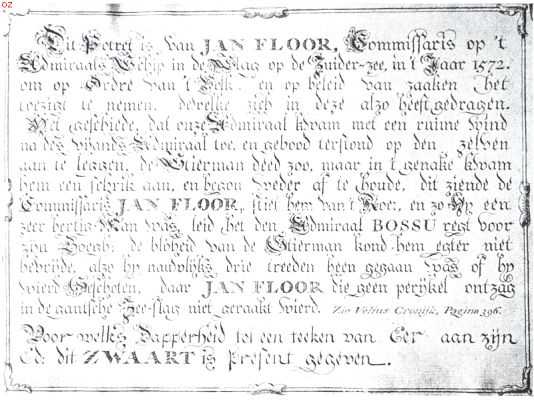 oz
Dit Potret is, van JAN FLOOR, Commissaris op 't
Admiraals Schip in de Slag op de Zuider-zee, in 't Jaar 1572.
om op Ordre van 't Volk, en op beleid van zaaken het
toezigt te nemen, dewelke zich in deze alzo heeft gedragen.
Het geschiede, dat onze Admiraal kwam met een ruime wind
na des vyands Admiraal toe, en gebood terstond op den zelven
aan te leggen, de Stierman deed zoo, maar in 't genake kwam
hem een schrik aan, en begon weder af te houde, dit ziende de
Commissaris JAN FLOOR, stiet hem van 't Roer, en zo hy een
zeer hertig Man was, leid het den Admiraal BOSSU regt voor
zyn Boegh: de bloheid van de Stierman kond hem egter niet
bevryde, alzo hy nauwlyks drie treeden heen gegaan was of hy
wierd Geschoten, daar JAN FLOOR die geen perykel ontzag
in de gantsche Zee-slag niet geraakt wierd. Zie Velius Cronijk, Pagina 396.
Voor welks Dapperheid tot een teeken van Eer aan zijn
Ed: dit ZWAART is present gegeven.